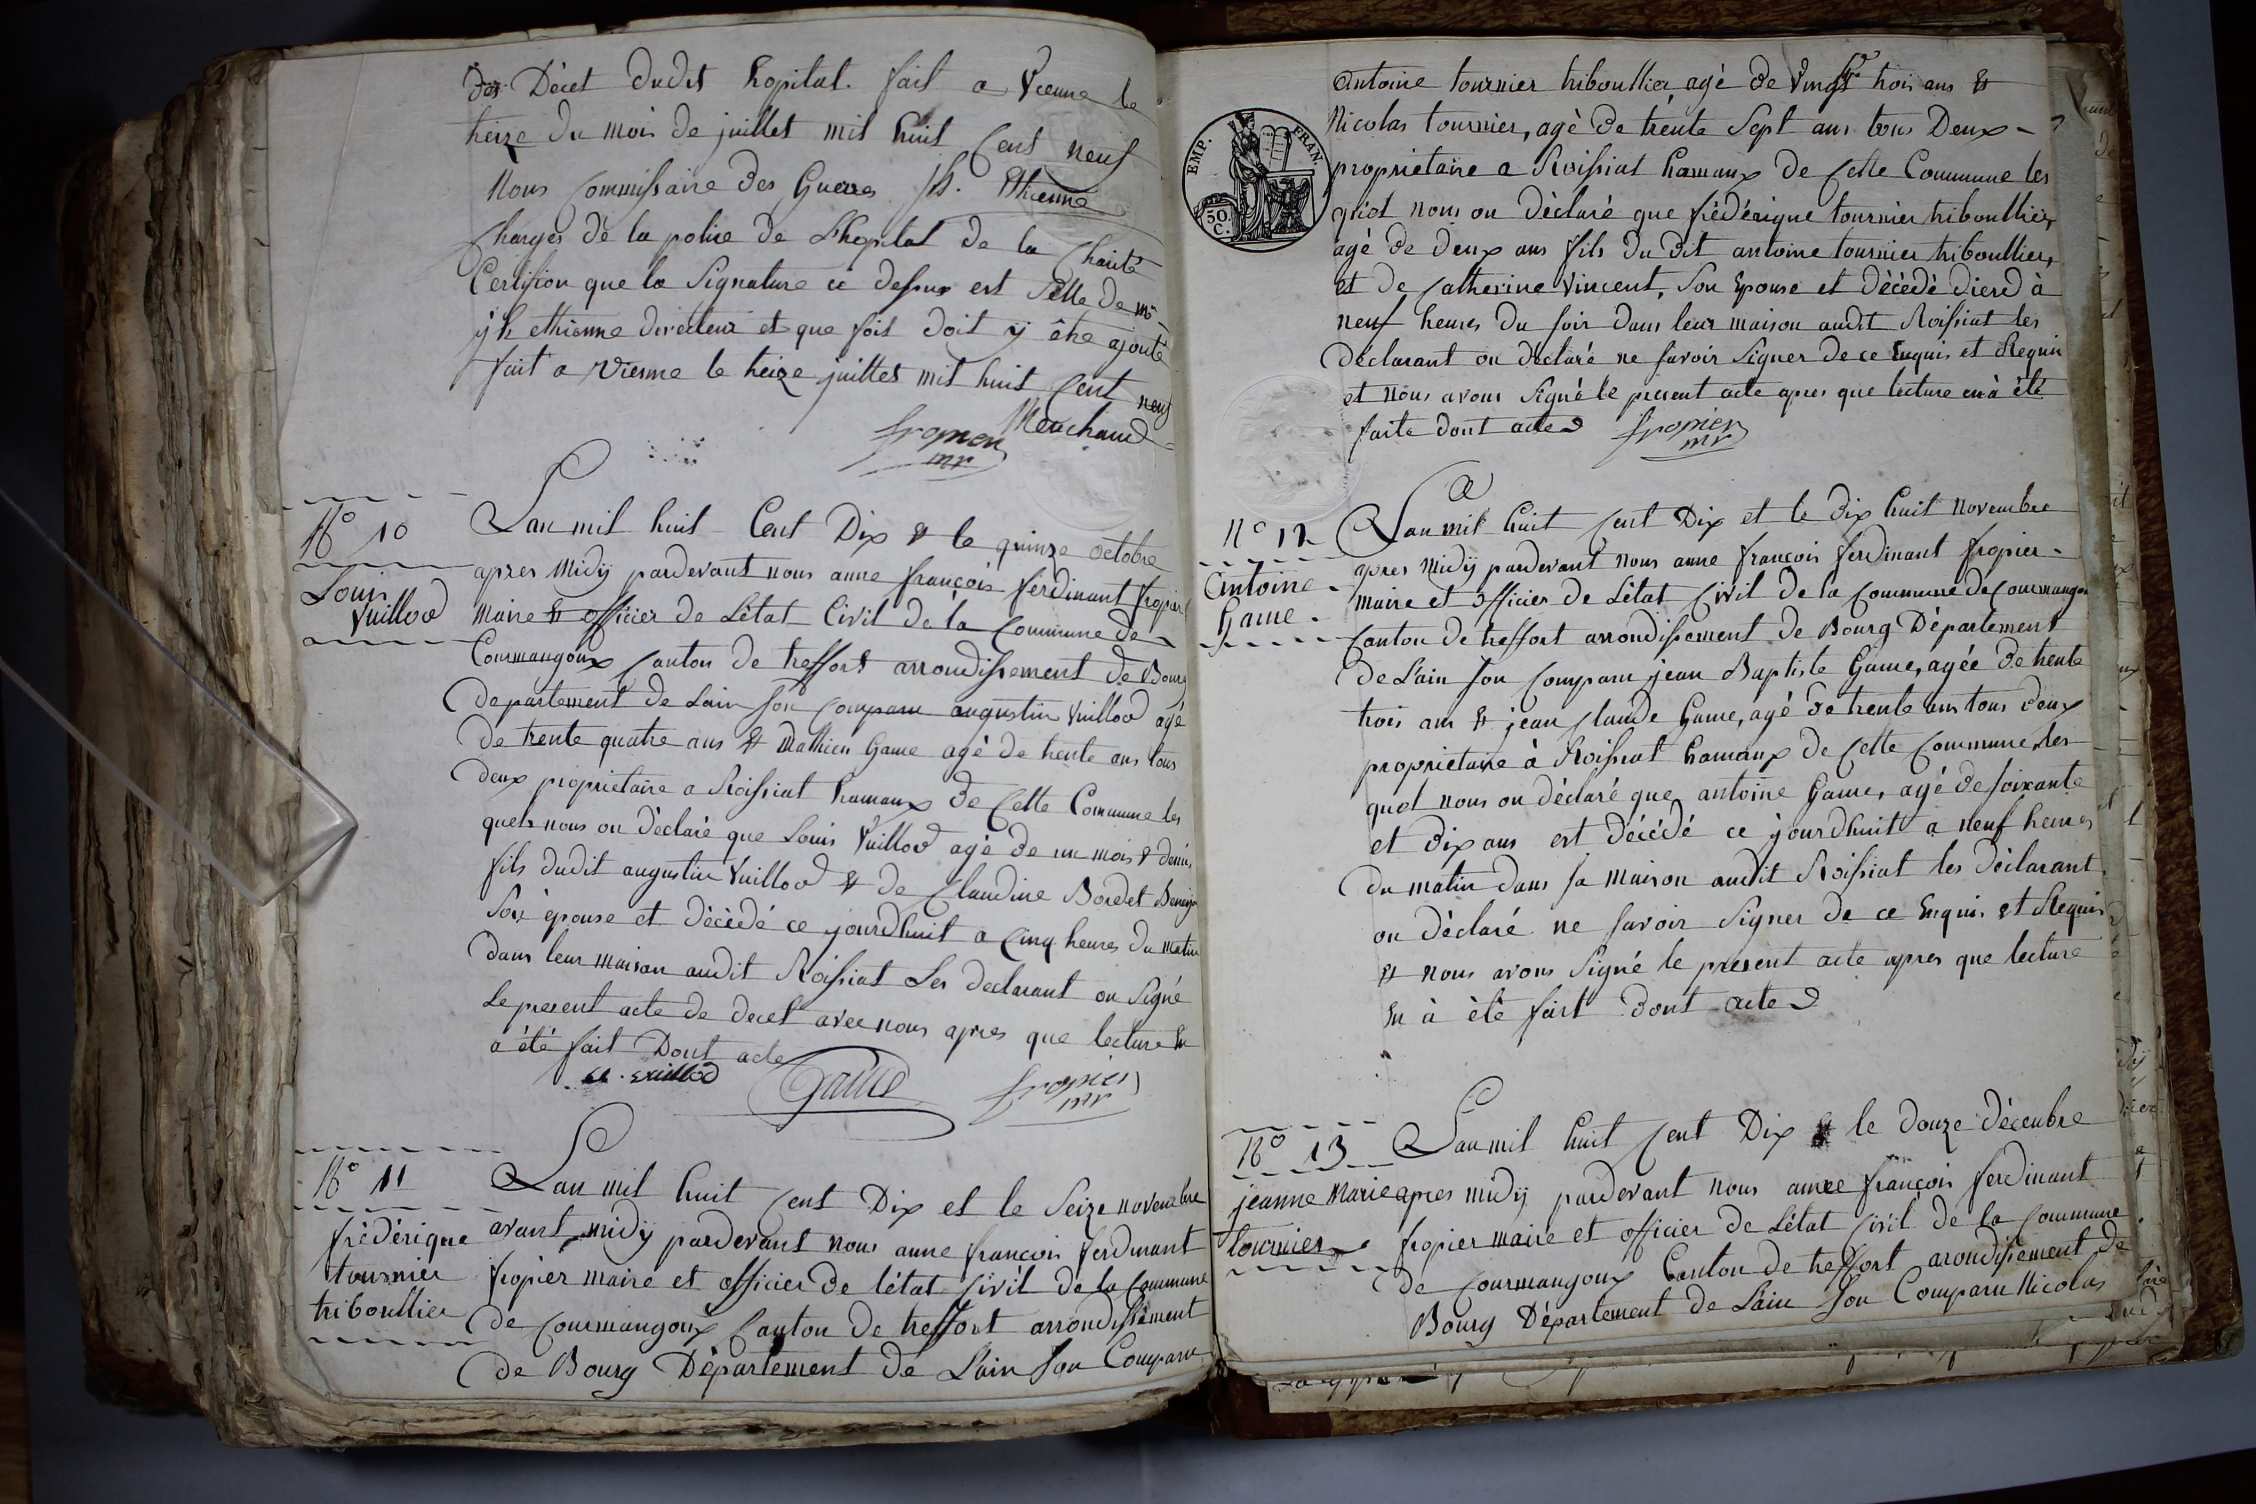 des Décet dudit hopital. fait a Vienne le
treize du mois de juillet mil huit cent neuf
Nous Commissaire des Guerres Jh. Ethienne
Chargés de la police de L'hopital de la Charité
Certifion que la Signature ci dessus est Selle de mr
jh ethienne directeur et que fois doit y être ajouté
fait a Vienne le treize juillet mil huit Cent neuf
Marchand
fropier
mr
N° 10
Louis
Vuillod
Lan mil huit Cent Dix & le quinze octobre
apres Midÿ pardevant nous anne françois ferdinant fropier
Maire & officier de Létat Civil de la Commune de
Courmangoux Canton de treffort arrondissement de Bourg
Departement de Lain Son Comparu augustin Vuillod agé
De trente quatre ans & Mathieu Game agé de trente ans tous
deux propriétaire a Roissiat hamaux de Cette Commune les
quels nous on déclaré que Louis Vuillod agé de un mois & demis
fils dudit augustin Vuillod & de Claudine Bordet
Son épouse et décèdé ce jourdhuit a Cinq heures du Matin
dans leur maison audit Roissiat Les declarant on Signé
Le present acte de decet avec nous apres que lecture En
a été fait Dont acte
vuillod Game fropier
mr
N° 11
frédérique
tournier
triboullier
Lan mil huit Cent Dix et le Seize novembre
avant midÿ pardevant nous anne francois ferdinant
fropier maire et officier de létat Civil de la Commune
de Courmangoux Canton de treffort arrondissement
de Bourg Département de Lain Son Comparu
EMP. FRAN.
50.
C.
antoine tournier triboullier agé de Vingt trois ans &
Nicolas tournier, agé de trente Sept ans tous Deux
propriétaire a Roissiat hamaux de Cette Commune les
quiot nous on Déclaré que frédérique tournier triboullier,
agé de deux ans fils du Dit antoine tournier triboullier,
et de Catherine Vincent, Son Epouse et décèdé diere à
neuf heures du soir dans leur maison audit Roissiat les
déclarant on déclaré ne savoir Signer de ce Enquis et Requis
et nous avons Signé le present acte apres que lecture en à été
faite dont acte fropier
mr
N° 12
Antoine
Game
Lan mil huit Cent Dix et le dix huit novembre
apres midÿ pardevant nous anne francois ferdinant fropier
maire et officier de Létat Civil de la Commune de Courmangoux
Canton de treffort arrondissement de Bourg Département
de Lain Son Comparu jean Baptiste Game, agée de trente
trois ans & jean Claude Game, agé de trente ans tous deux
propriétaire à Roissiat hamaux de Cette Commune, les
quot nous on déclaré que, antoine Game, agé de soixante
et dix ans est décédé ce jourdhuit a neuf heures
du matin dans sa maison audit Roissiat les déclarant
on déclaré ne savoir Signer de ce Enquis et Requis
& nous avons Signé le present acte apres que lecture
En à été fait Dont acte
N° 13
jeanne Marie
tournier
Lan mil huit Cent Dix & le douze décembre
apres midÿ pardevant nous anne françois ferdinant
fropier maire et officier de Létat Civil de la Commune
de Courmangoux Canton de treffort arondissement de
Bourg Département de Lain Son Comparu Nicolas